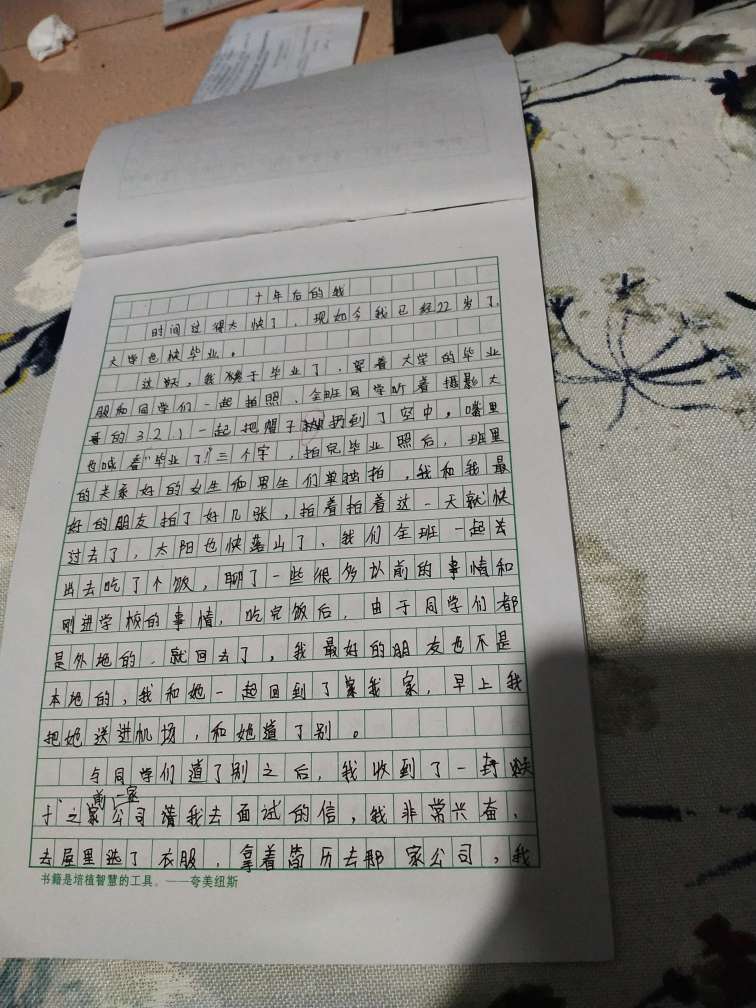 十年后的我
时间过得太快了，现如今我已经22岁了，
大学也快毕业。
这天，我终于毕业了，穿着大学的毕业
服和同学们一起拍照，全班同学听着摄影大
哥的321一起把帽子扔到了空中，嘴里
也喊着"毕业了！"三个字，拍完毕业照后，班里
的关系好的女生和男生们单独拍，我和我最
好的朋友拍了好几张，拍着拍着这一天就快
过去了，太阳也快落山了，我们全班一起去
出去吃了个饭，聊了一些很多以前的事情和
刚进学校的事情，吃完饭后，由于同学们都
是外地的，就回去了，我最好的朋友也不是
本地的，我和她一起回到了我家，早上我
把她送进机场，和她道了别。
与同学们道了别之后，我收到了一封
之前一家公司请我去面试的信，我非常兴奋，
去屋里选了衣服，拿着简历去那家公司，我
书籍是培植智慧的工具。——夸美纽斯